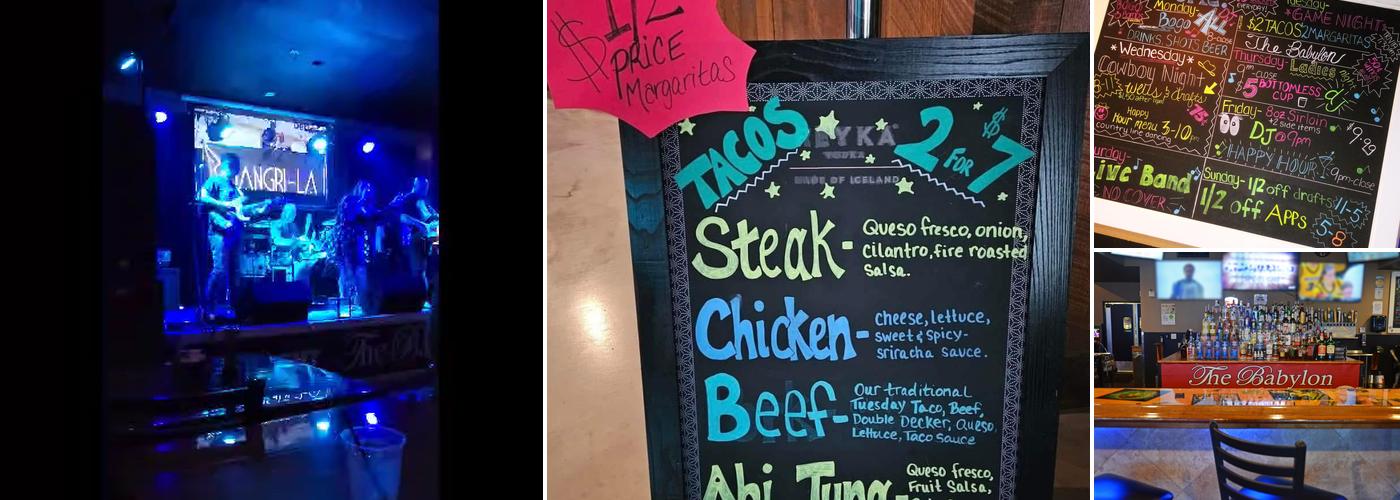 ANGRI-LA
The
$ 1/2
PRICE
Margaritas
TACOS
2 FOR $7
REYKA
VODKA
MADE OF ICELAND
Steak- Queso fresco, onion,
cilantro, fire roasted
Salsa.
Chicken- cheese, lettuce,
sweet & spicy-
sriracha sauce.
Beef- Our traditional
Tuesday Taco, Beef,
Double Decker, Queso,
Lettuce, Taco Sauce
Ahi Tuna- Queso fresco,
Fruit Salsa,
Monday-
Bogo ALL
DRINKS, SHOTS BEER
*Wednesday*
Cowboy Night
wells & drafts
Happy
Hour menu 3-10pm
country line dancing
urday-
ive Band
NO COVER
Tuesday-
GAME NIGHT
$2 TACOS 2 MARGARITAS
The Babylon
Thursday- Ladies
CLOSE
$5 BOTTOMLESS
CUP
DJ
Friday- 8oz Sirloin
+2 side items
$9.99
DJ @ 9pm
HAPPY HOUR
9pm-close
Sunday- 1/2 off drafts 11-5
1/2 off APPS
5-8
The Babylon